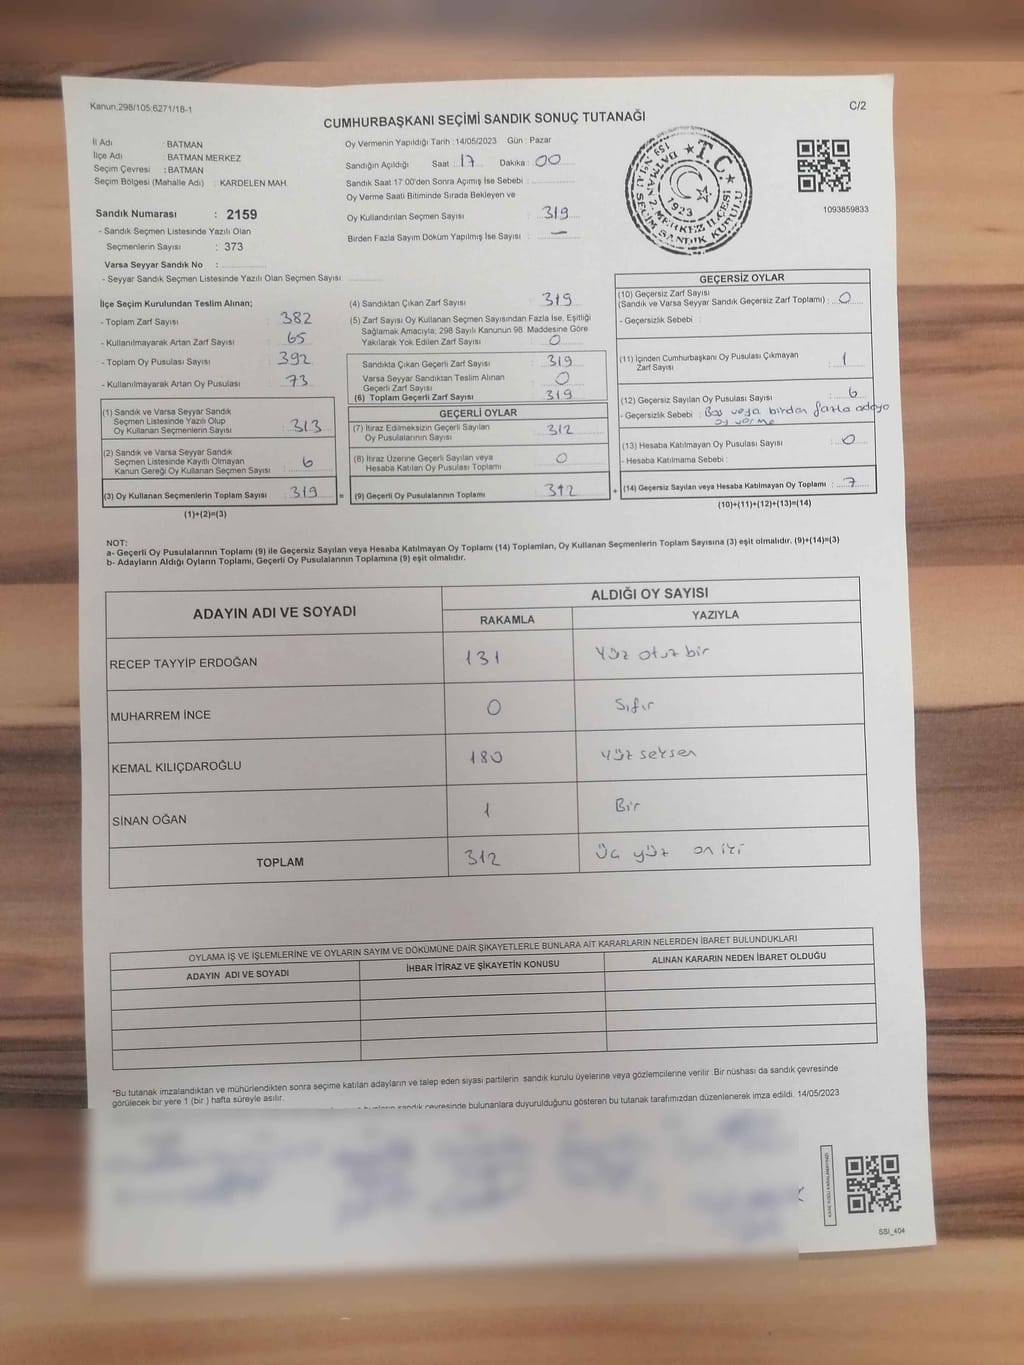 Kanun:298/105:6271/18-1
C/2
CUMHURBAŞKANI SEÇİMİ SANDIK SONUÇ TUTANAĞI
İl Adı : BATMAN
İlçe Adı : BATMAN MERKEZ
Seçim Çevresi : BATMAN
Seçim Bölgesi (Mahalle Adı) : KARDELEN MAH.
Sandık Numarası : 2159
- Sandık Seçmen Listesinde Yazılı Olan
Seçmenlerin Sayısı : 373
Varsa Seyyar Sandık No :
- Seyyar Sandık Seçmen Listesinde Yazılı Olan Seçmen Sayısı:
Oy Vermenin Yapıldığı Tarih :14/05/2023 Gün : Pazar
Sandığın Açıldığı Saat : 17 Dakika : 00
Sandık Saat 17:00'den Sonra Açımış İse Sebebi :
Oy Verme Saati Bitiminde Sırada Bekleyen ve
Oy Kullandırılan Seçmen Sayısı : 319
Birden Fazla Sayım Döküm Yapılmış İse Sayısı : —
T.C.
1923
1093859833
İlçe Seçim Kurulundan Teslim Alınan;
- Toplam Zarf Sayısı : 382
- Kullanılmayarak Artan Zarf Sayısı : 65
- Toplam Oy Pusulası Sayısı : 392
- Kullanılmayarak Artan Oy Pusulası : 73
(1) Sandık ve Varsa Seyyar Sandık
Seçmen Listesinde Yazılı Olup
Oy Kullanan Seçmenlerin Sayısı : 313
(2) Sandık ve Varsa Seyyar Sandık
Seçmen Listesinde Kayıtlı Olmayan
Kanun Gereği Oy Kullanan Seçmen Sayısı : 6
(3) Oy Kullanan Seçmenlerin Toplam Sayısı : 319 =
(1)+(2)=(3)
(4) Sandıktan Çıkan Zarf Sayısı : 319
(5) Zarf Sayısı Oy Kullanan Seçmen Sayısından Fazla İse, Eşitliği
Sağlamak Amacıyla, 298 Sayılı Kanunun 98. Maddesine Göre
Yakılarak Yok Edilen Zarf Sayısı : 0
Sandıkta Çıkan Geçerli Zarf Sayısı : 319
Varsa Seyyar Sandıktan Teslim Alınan
Geçerli Zarf Sayısı : 0
(6) Toplam Geçerli Zarf Sayısı : 319
GEÇERLİ OYLAR
(7) İtiraz Edilmeksizin Geçerli Sayılan
Oy Pusulalarının Sayısı : 312
(8) İtiraz Üzerine Geçerli Sayılan veya
Hesaba Katılan Oy Pusulası Toplamı : 0
(9) Geçerli Oy Pusulalarının Toplamı : 312 +
GEÇERSİZ OYLAR
(10) Geçersiz Zarf Sayısı
(Sandık ve Varsa Seyyar Sandık Geçersiz Zarf Toplamı) : 0
- Geçersizlik Sebebi :
(11) İçinden Cumhurbaşkanı Oy Pusulası Çıkmayan
Zarf Sayısı : 1
(12) Geçersiz Sayılan Oy Pusulası Sayısı : 6
- Geçersizlik Sebebi : Boş veya birden fazla adaya
oy verme
(13) Hesaba Katılmayan Oy Pusulası Sayısı : 0
- Hesaba Katılmama Sebebi :
(14) Geçersiz Sayılan veya Hesaba Katılmayan Oy Toplamı : 7
(10)+(11)+(12)+(13)=(14)
NOT:
a- Geçerli Oy Pusulalarının Toplamı (9) ile Geçersiz Sayılan veya Hesaba Katılmayan Oy Toplamı (14) Toplamları, Oy Kullanan Seçmenlerin Toplam Sayısına (3) eşit olmalıdır. (9)+(14)=(3)
b- Adayların Aldığı Oyların Toplamı, Geçerli Oy Pusulalarının Toplamına (9) eşit olmalıdır.
ADAYIN ADI VE SOYADI
ALDIĞI OY SAYISI
RAKAMLA YAZIYLA
RECEP TAYYİP ERDOĞAN 131 Yüz otuz bir
MUHARREM İNCE 0 Sıfır
KEMAL KILIÇDAROĞLU 180 Yüz seksen
SİNAN OĞAN 1 Bir
TOPLAM 312 Üç yüz on iki
OYLAMA İŞ VE İŞLEMLERİNE VE OYLARIN SAYIM VE DÖKÜMÜNE DAİR ŞİKAYETLERLE BUNLARA AİT KARARLARIN NELERDEN İBARET BULUNDUKLARI
ADAYIN ADI VE SOYADI
İHBAR İTİRAZ VE ŞİKAYETİN KONUSU
ALINAN KARARIN NEDEN İBARET OLDUĞU
"Bu tutanak imzalandıktan ve mühürlendikten sonra seçime katılan adayların ve talep eden siyasi partilerin sandık kurulu üyelerine veya gözlemcilerine verilir. Bir nüshası da sandık çevresinde
görülecek bir yere 1 (bir ) hafta süreyle asılır.
sandık çevresinde bulunanlara duyurulduğunu gösteren bu tutanak tarafımızdan düzenlenerek imza edildi. 14/05/2023
SSI_404